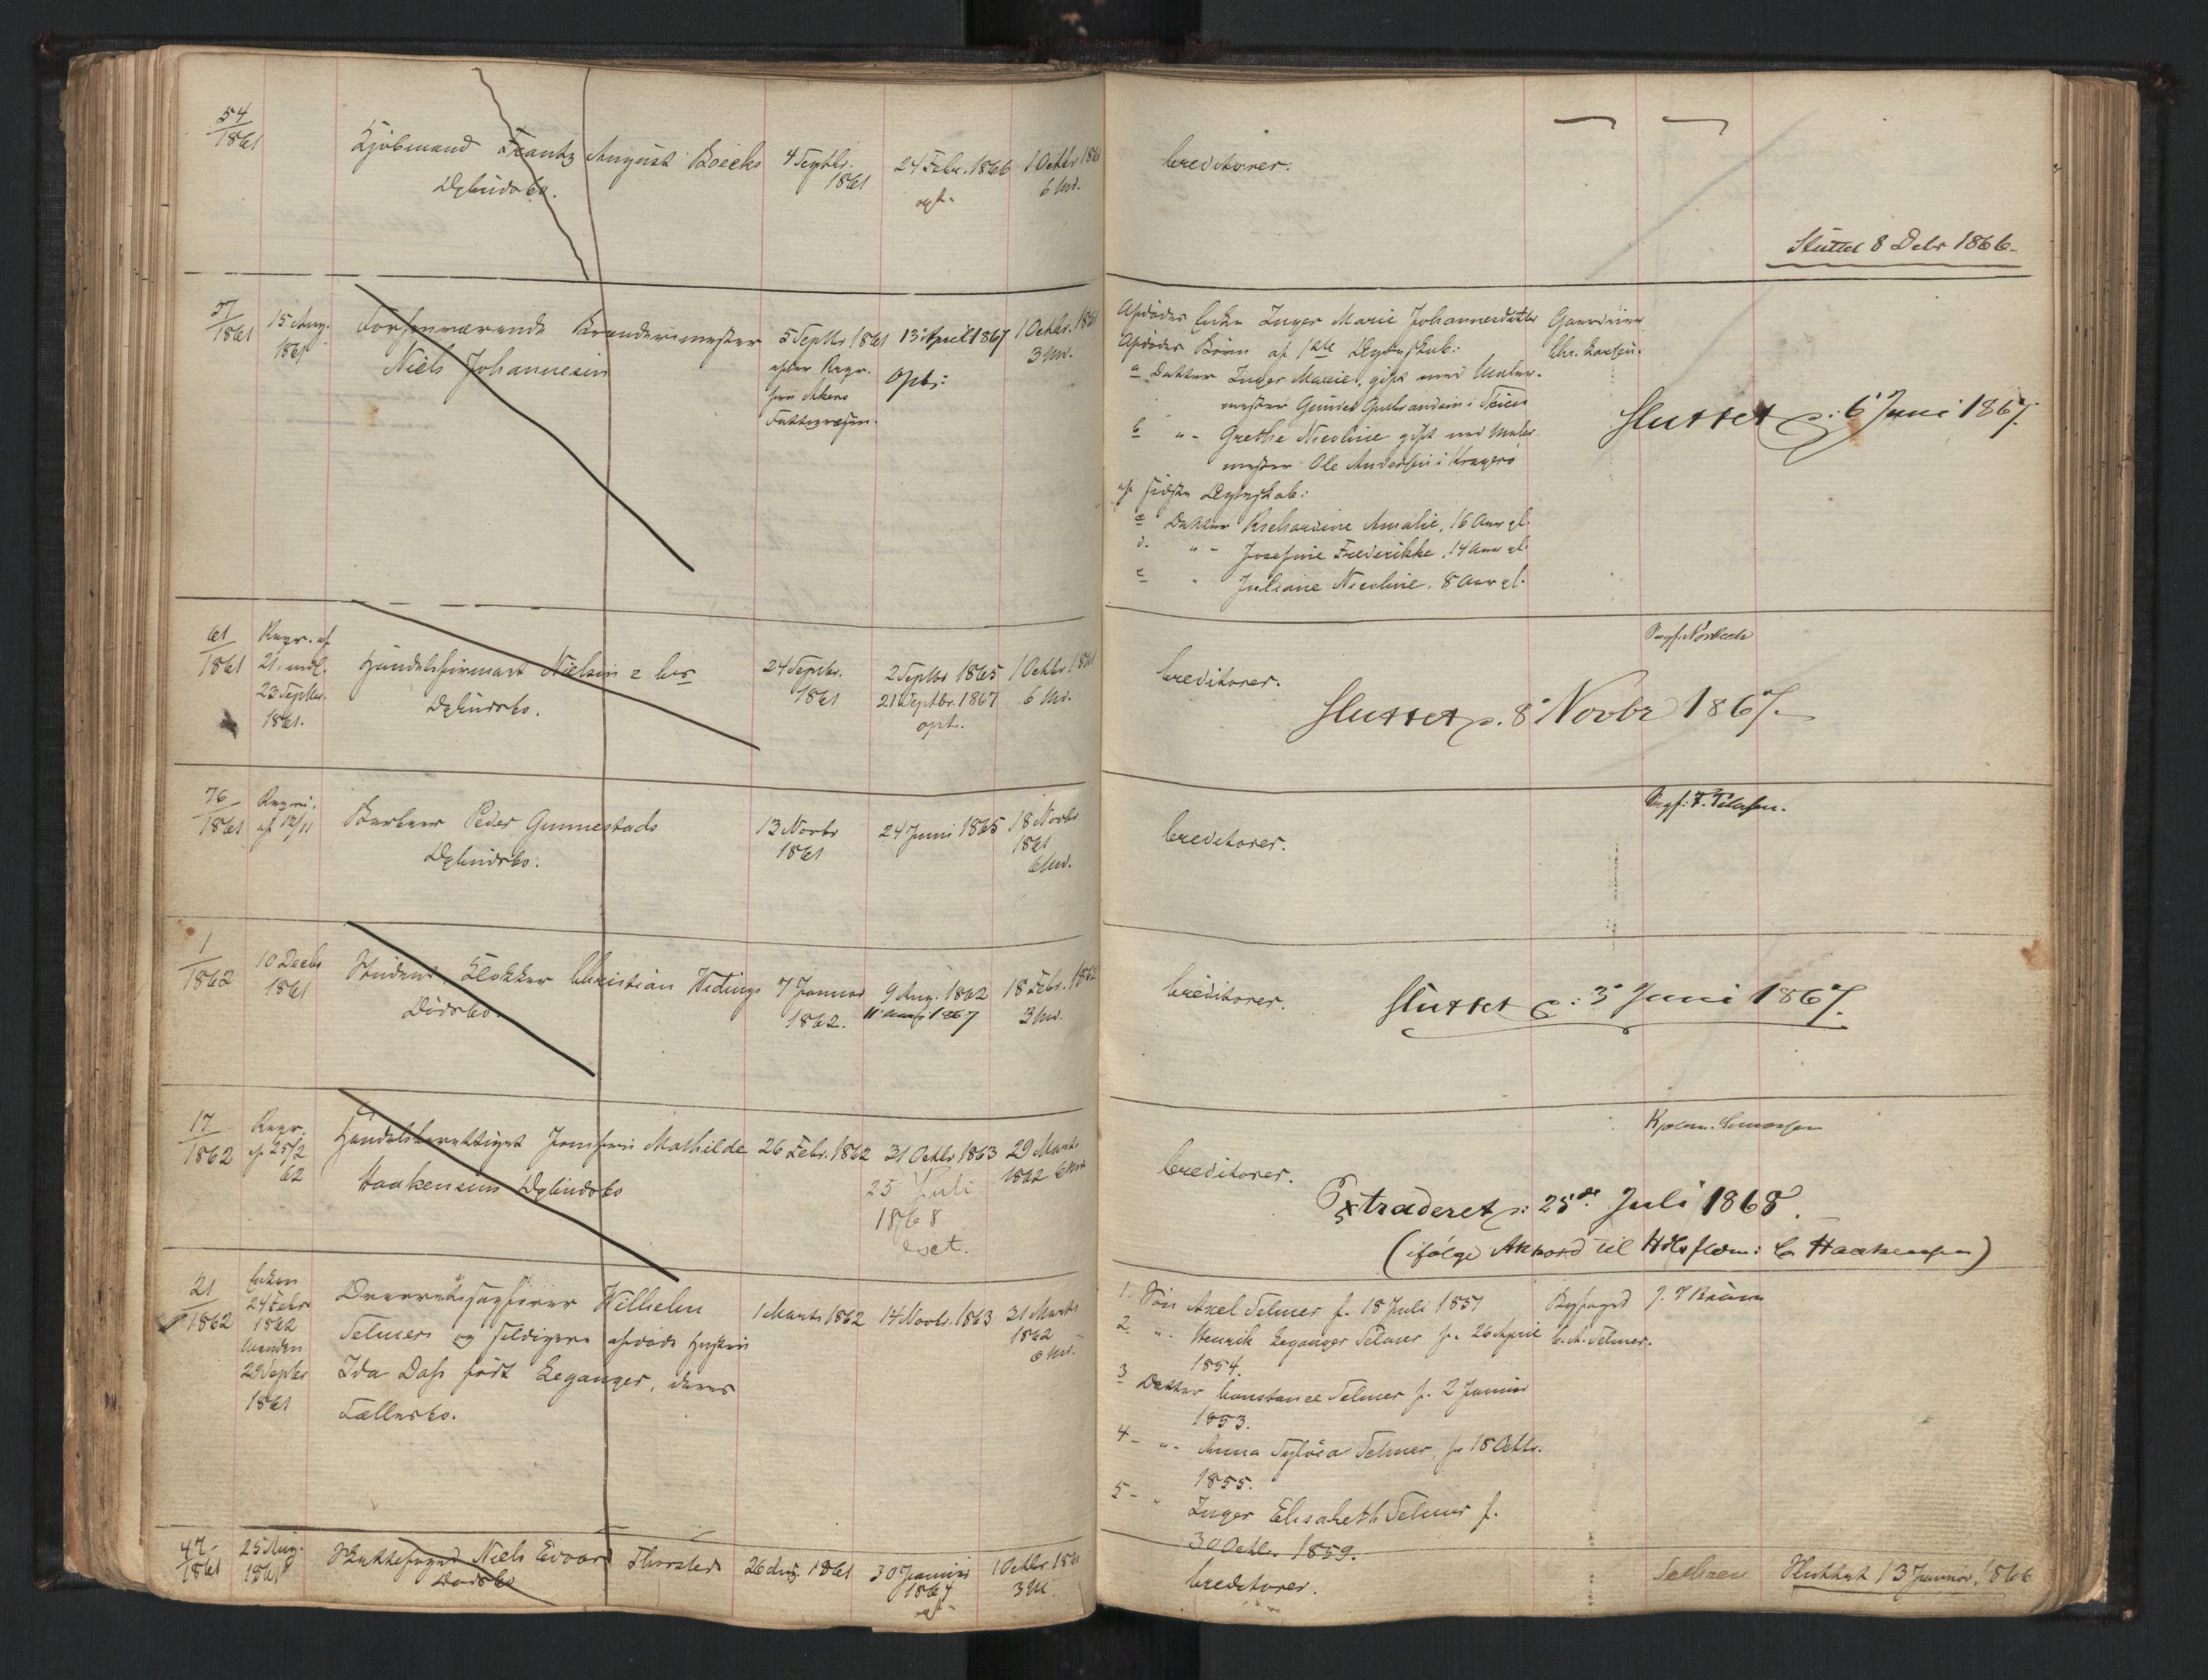 54
1861
Kjøbmand Frantz August Boecks
Opbudsbo.
4 Septbr.
1861
24 Febr. 1866
opt.
1 Octbr. 1861
6 Md.
Creditorer:
Sluttet 8 Debr 1866.
57
1861
15 Aug.
1861
Forhenværende Brandermester
Niels Johannesen
5 Septbr 1861
efter Reqv.
fra Akers
Fattigvæsen.
13 April 1867
Opt:
1 Octbr. 1861
3 Md.
Afdødes Enke Inger Marie Johannesdatter
Afdødes Børn af 1ste Ægteskab:
a Datter Inger Marie, gift med Maler-
mester Gunder Gulbrandsen i
b " - Grethe Nicoline gift med Maler
mester Ole Andersen i Kragerø
af sidste Ægteskab:
c Datter Richardine Amalie, 16 Aar gl.
d. " - Josefine Frederikke, 14 Aar gl.
e " Juliane Nicoline, 8 Aar gl.
Chr.
Sluttet d: 6 Juni 1867.
61
1861
Reqv. af
21. mdl.
23 Septbr.
1861.
Handelsfirmaet Nielsen & Co's
Opbudsbo.
24 Septbr.
1861
2 Septbr 1865
21 Septbr. 1867
opt.
1 Octbr. 1861
6 Md.
Creditorer.
Sluttet d. 8 Novbr 1867.
76
1861
Reqvi.
af 12/11
Peder Gunnestads
Opbudsbo.
13 Novbr
1861
24 Juni 1865
18 Novbr
1861
6 Md.
Creditorer.
1
1862
10 Decbr
1861
Student, Klokker Christian Wedings
Dødsbo.
7 Januar
1862.
9 Aug. 1862
18 Febr. 1862
3 Md.
Creditorer.
Sluttet d: 3 Juni 1867.
17
1862
Reqv.
af 25/2
62
Handelsberettiget Jomfru Mathilde
Haakensens Opbudsbo
26 Febr. 1862
31 Octbr 1863
25 Juli
1868
29 Marts
1862 6 Md
Creditorer.
Extraderet d: 25de Juli 1868.
(ifølge Akkord til C Haakensen)
21
1862
Enken
24 Febr
1862
Manden
29 Septbr
1861
Overretssagfører Wilhelm
Selmers og senere afdøde Hustru
Ida Dass født Leganger, deres
Fællesbo.
1 Marts 1862
14 Novb. 1863
31 Marts
1862
6 Md.
1. Søn Axel Selmer f. 18 Juli 1851
2. " Henrik Leganger Selmer f. 26 April
1854.
3 Datter Constance Selmer f. 2 Januar
1853.
4 - " - Anna Sylvia Selmer, f. 18 Octbr.
1855.
5 - " Inger Elisabeth Selmer f.
30 Octbr. 1859.
Byfoged
Selmer.
47
1861
25 Aug.
1861
Skattefoged Niels Edvard Thorsteds
Dødsbo
26 Aug. 1861
30 Januar
1864
opt.
1 Octbr 1861
3 M.
Creditorer.
Sluttet 13 Januar 1866